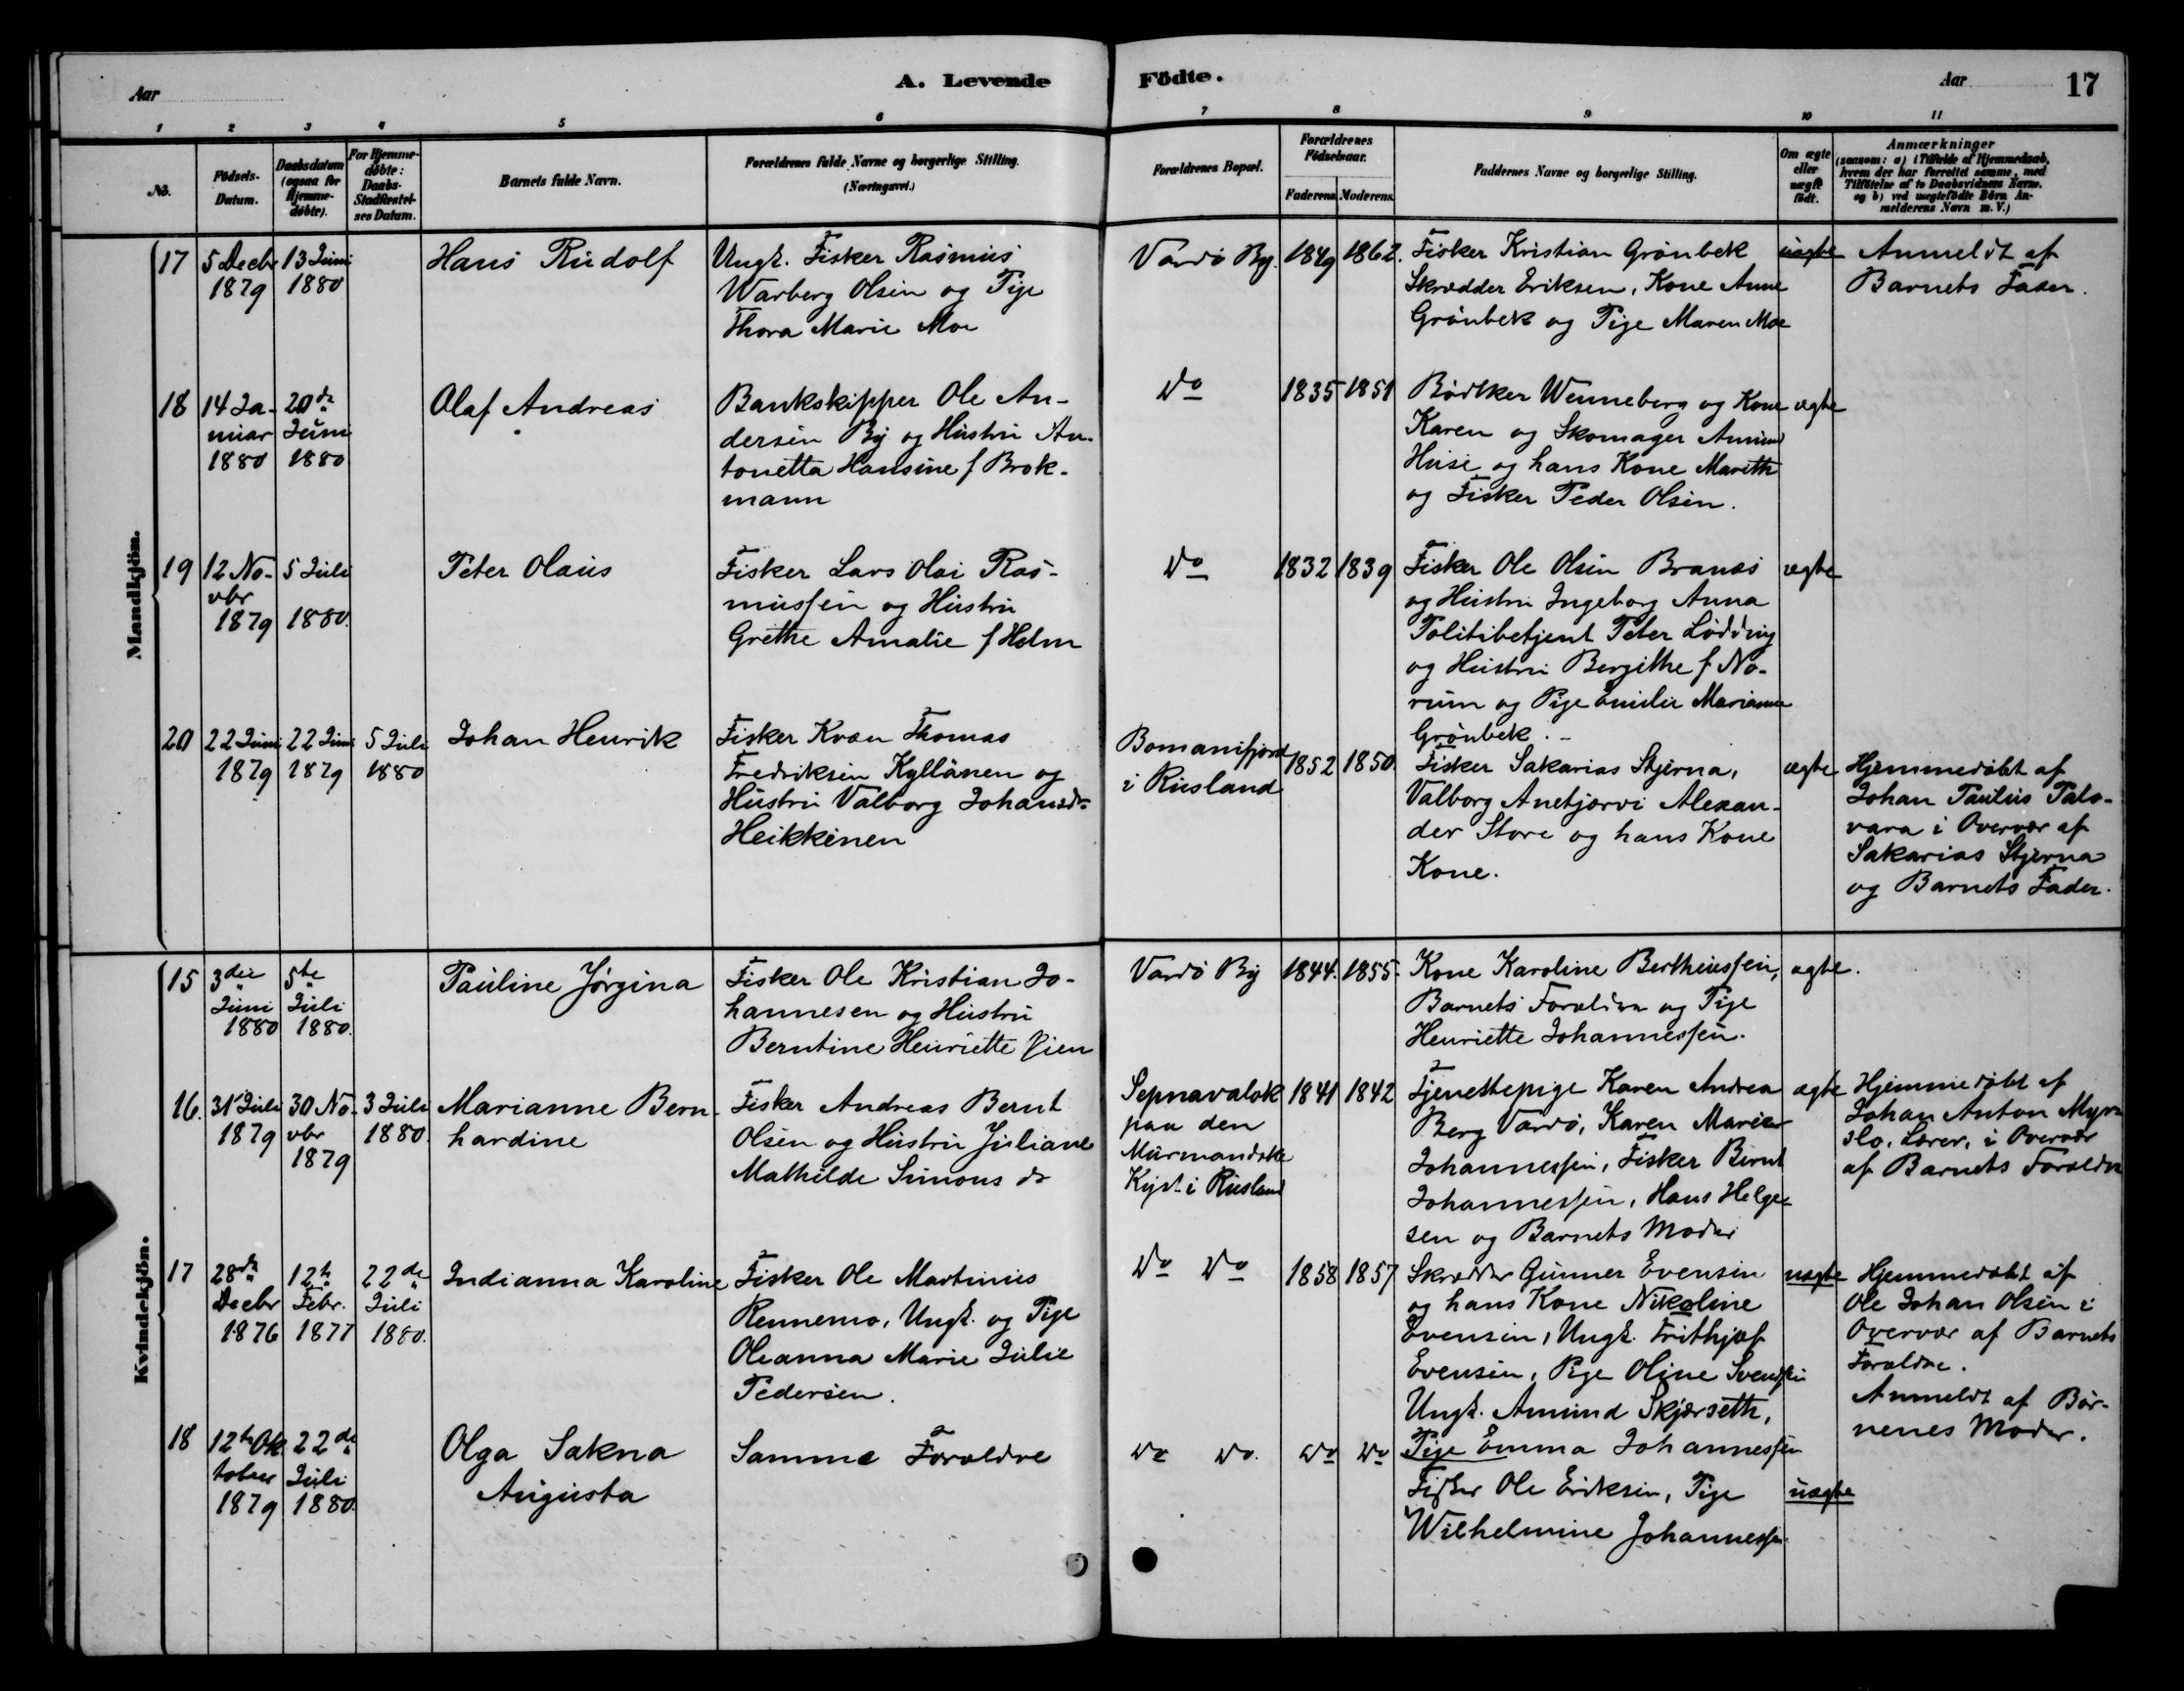 Aar
A. Levende
Födte.
Aar
17
1 2 3 4 5 6 7 8 9 10 11
No.
Födsels-
Datum.
Daabsdatum
(ogsaa for
Hjemme-
døbte).
For Hjemme-
døbte:
Daabs-
Stadfæstel-
ses Datum.
Barnets fulde Navn.
Forældrenes fulde Navne og borgerlige Stilling.
(Næringsvei.)
Forældrenes Bopæl.
Forældrenes
Födselsaar.
Faderens. Moderens.
Faddernes Navne og borgerlige Stilling.
Om ægte
eller
uægte
født.
Anmærkninger
(saasom: a) i Tilfælde af Hjemmedaab,
hvem der har forrettet samme, med
Tilföielse af to Daabsvidners Navne,
og b) ved uægtefödte Börn An-
melderens Navn m. V.)
Mandkjön.
17
5 Decbr
1879
13 Juni
1880
Hans Rudolf
Ungk. Fisker Rasmus
Warberg Olsen og Pige
Thora Marie Moe
Vardö By.
1849
1862.
Fisker Kristian Grönbek
Skrædder Eriksen, Kone Anne
Grönbek og Pige Maren Moe
uægte
Anmeldt af
Barnets Fader.
18
14 Ja-
nuar
1880
20de
Juni
1880
Olaf Andreas
Bankskipper Ole An-
dersen By og Hustru An-
tonetta Hansine f Brok-
mann
Do
1835
1851
Bödker Wenneberg og Kone
Karen og Skomager Amund
Huse og hans Kone Mareth
og Fisker Peder Olsen.
ægte
19
12 No-
vbr
1879
5 Juli
1880.
Peter Olaus
Fisker Lars Olai Ras-
mussen og Hustru
Grethe Amalie f Holm
Do
1832
1839
Fisker Ole Olsen Branæs
og Hustru Ingeborg Anna
Politibetjent Peter Lödding
og Hustru Bergithe f No-
rum og Pige Emilie Marianne
Grönbek.-
ægte
20
22 Juni
1879
22 Juni
1879
5 Juli
1880
Johan Henrik
Fisker Kvæn Thomas
Fredriksen Kyllänen og
Hustru Valborg Johansdr
Heikkinen
Bomanifjord
i Rusland
1852
1850.
Fisker Sakarias Stjerna,
Valborg Anetjærvi Alexan-
der Store og hans Kone
Kone.
ægte
Hjemmedöbt af
Johan Paulus Palo-
vara i Overvær af
Sakarias Stjerna
og Barnets Fader.
Kvindekjön.
15
3die
Juni
1880
5te
Juli
1880.
Pauline Jørgina
Fisker Ole Kristian Jo-
hannesen og Hustru
Berntine Henriette
Vardö By
1844.
1855.
Kone Karoline Bertheussen,
Barnets Forældre og Pige
Henriette Johannessen.
ægte.
16.
31 Juli
1879
30 No-
vbr
1879
3 Juli
1880.
Marianne Bern-
hardine
Fisker Andreas Bernt
Olsen og Hustru Juliane
Mathilde Simonsdr
Sepnavalok
paa den
Murmandske
Kyst i Rusland
1841
1842
Tjenestepige Karen Andrea
Berg Vardö, Karen Marie
Johannessen, Fisker Bernt
Johannessen, Hans Helge-
sen og Barnets Moder
ægte
Hjemmedöbt af
Johan Anton Myr-
slo, Lærer, i Overvær
af Barnets Forældre
17
28de
Decbr
1876
12te
Febr.
1877
22de
Juli
1880.
Indianna Karoline
Fisker Ole Martinius
Rennemo, Ungk. og Pige
Oleanna Marie Julie
Pedersen.
Do Do
1858
1857
Skrædder Gunner Evensen
og hans Kone Nikoline
Evensen, Ungk. Frithjof
Evensen, Pige Oline Svendsen
Ungk. Amund Skjærseth,
uægte
Hjemmedöbt af
Ole Johan Olsen i
Overvær af Barnets
Forældre.
Anmeldt af Bör-
nenes Moder.
18
12te Ok-
tober
1879
22de
Juli
1880.
Olga Sakna
Augusta
Samme Forældre
Do Do.
Do
Do
Pige Emma Johannessen
Fisker Ole Eriksen, Pige
Wilhelmine Johannessen
uægte